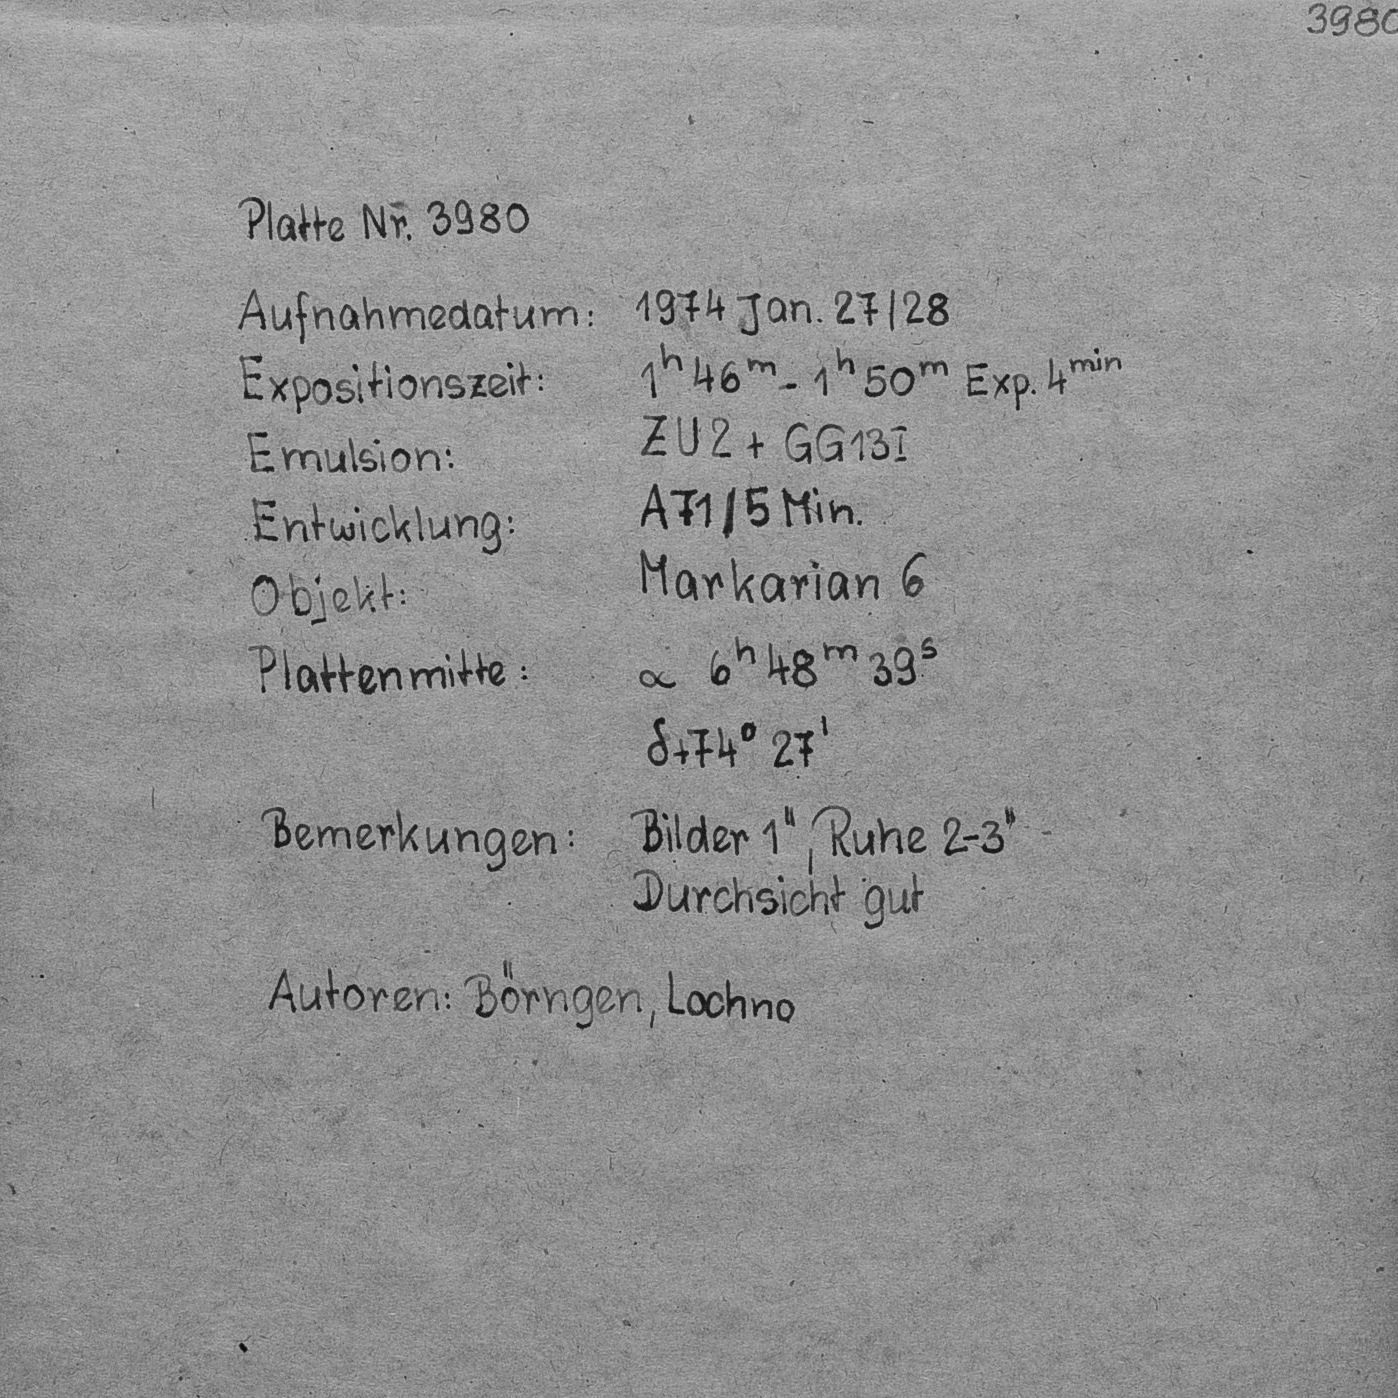 3980
Platte Nr. 3980
Aufnahmedatum: 1974 Jan. 27/28
Expositionszeit: 1ʰ 46ᵐ - 1ʰ 50ᵐ Exp. 4ᵐⁱⁿ
Emulsion: ZU2 + GG13I
Entwicklung: A71/5 Min.
Objekt: Markarian 6
Plattenmitte: α 6ʰ 48ᵐ 39ˢ
δ+74° 27'
Bemerkungen: Bilder 1", Ruhe 2-3"
Durchsicht gut
Autoren: Börngen, Lochno